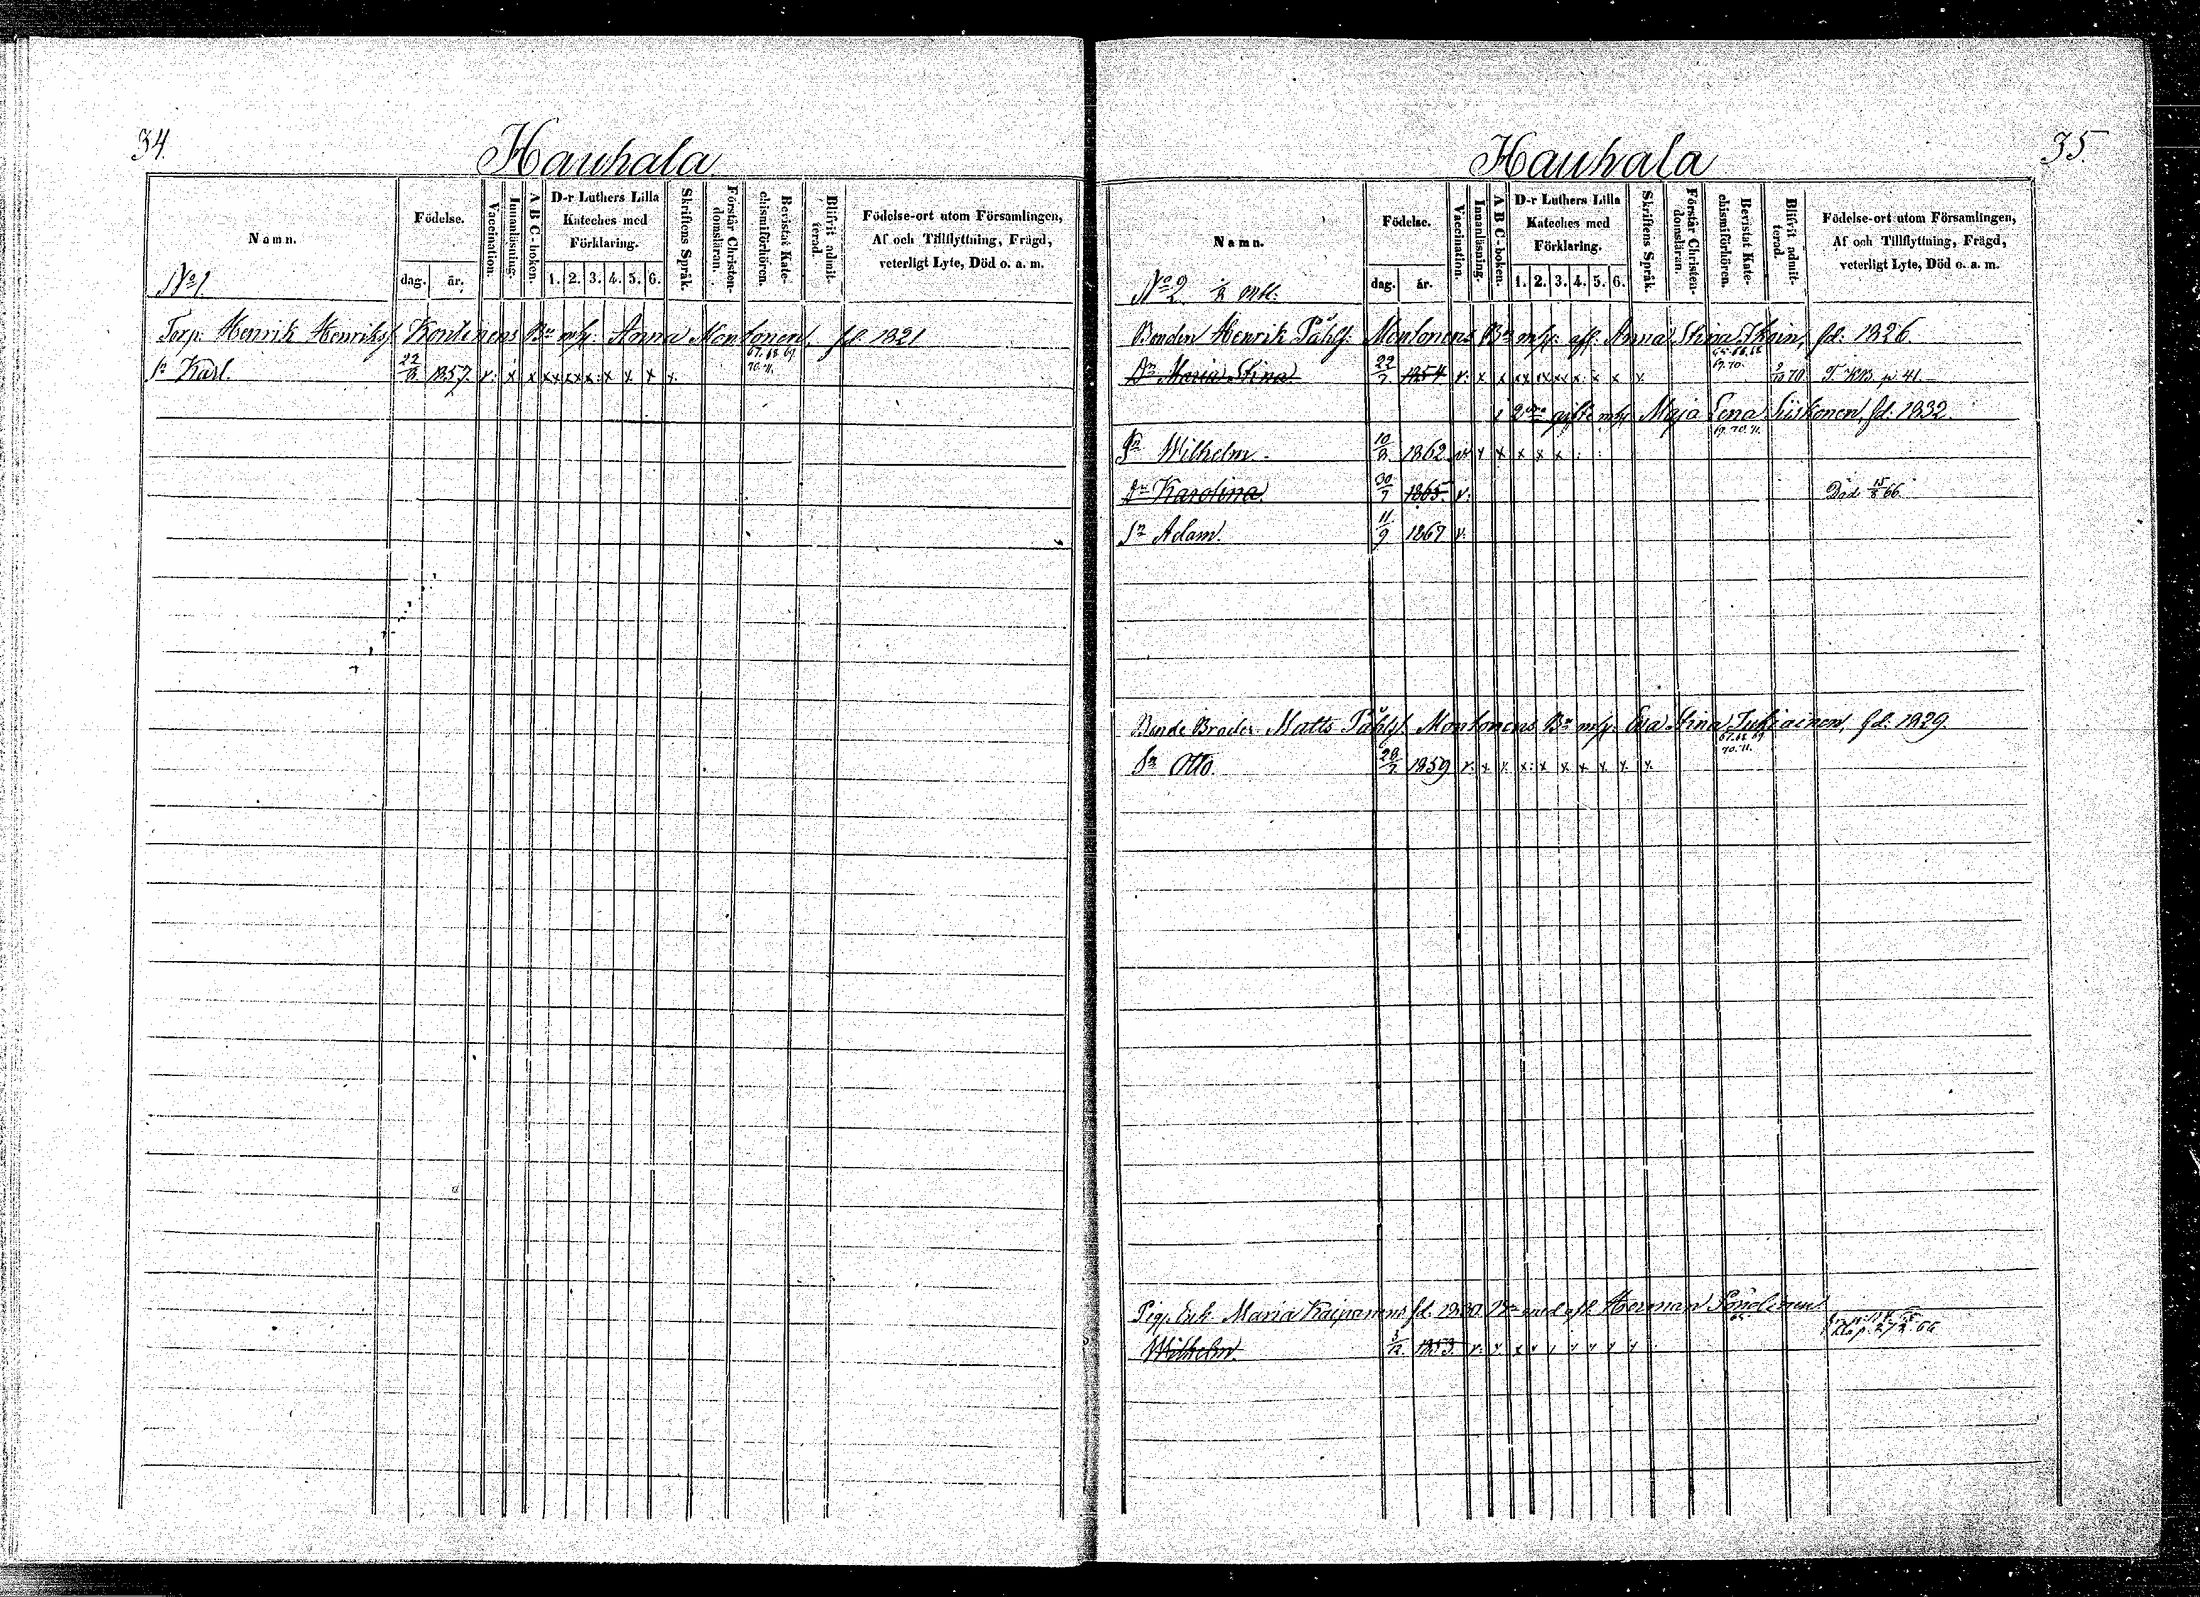 34.
Hauhala
Namn.
Födelse.
dag. år.
Vaccination.
Innanläsning.
A B C-boken.
D-r Luthers Lilla Kateches med Förklaring.
1. 2. 3. 4. 5. 6.
Skriftens Språk.
Förstår Christendomsläran.
Bevistat Katechismiförhören.
Blifvit admitterad.
Födelse-ort utom Församlingen,
Af och Tillflyttning, Frägd,
veterligt Lyte, Död o. a. m.
No 1.
Torp. Henrik Henriksf. Kontinens Bn mf: Anna Montonen, fd. 1821
67. 68 69.
70. 71.
Sn Karl. 22/8 1857. v: x x xx xx x: x x x x.
35.
Hauhala
Namn.
Födelse.
dag. år.
Vaccination.
Innanläsning.
A B C-boken.
D-r Luthers Lilla Kateches med Förklaring.
1. 2. 3. 4. 5. 6.
Skriftens Språk.
Förstår Christendomsläran.
Bevistat Katechismiförhören.
Blifvit admitterad.
Födelse-ort utom Församlingen,
Af och Tillflyttning, Frägd,
veterligt Lyte, Död o. a. m.
No 2.
Bonden Henrik Påhlf. Montonens Bn mf: afl. Anna Stina, fd: 1826.
69. 70.
Dr Maria Stina 22/7 1854 v: x x xx xx xx x: x x x. 70 p 41.
i 2dra gifte mf Maja Lena Siiskonen, fd: 1832.
69. 70. 71.
Sn Wilhelm. 10/8 1862 v x x x x x : :
Dr Karolina. 30/7 1865 v: Död 15/8 66.
Sn Adam. 11/9 1867 v.
Bonde Broder Matts Påhlsf. Montonens Bn mf: Eva Stina Tukiainen, fd: 1829.
67. 68 69
70. 71.
Sn Otto. 28/7 1859 v: x x. x: x x x x x. x.
Maria Kaipanens fd: 1830. med afl. Herman
65.
Wilhelm. 3/12 1853.